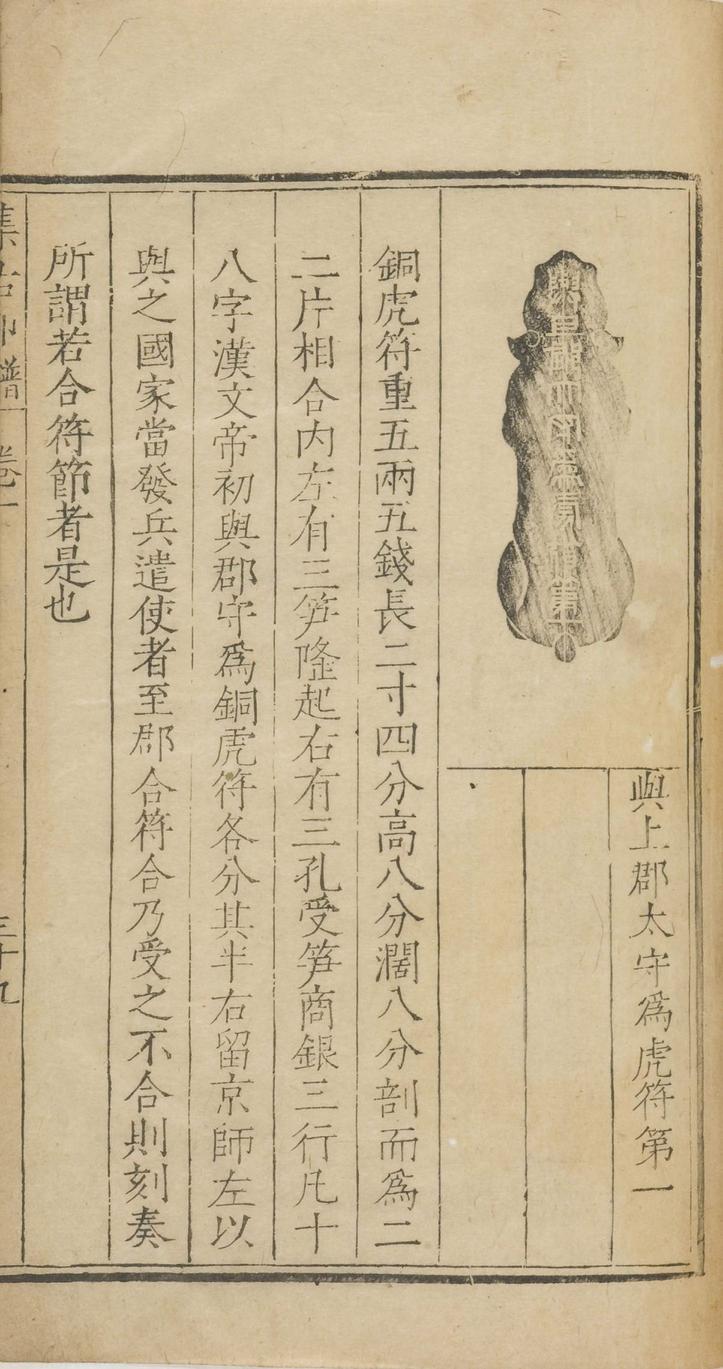 與上郡太守爲虎符第一
銅虎符重五兩五錢長二寸四分高八分濶八分剖而爲二
二片相合内左有三笋隆起右有三孔受笋商銀三行凡十
八字漢文帝初與郡守爲銅虎符各分其半右留京師左以
與之國家當發兵遣使者至郡合符合乃受之不合則刻奏
所謂若合符節者是也
集古印譜 卷一 三十九